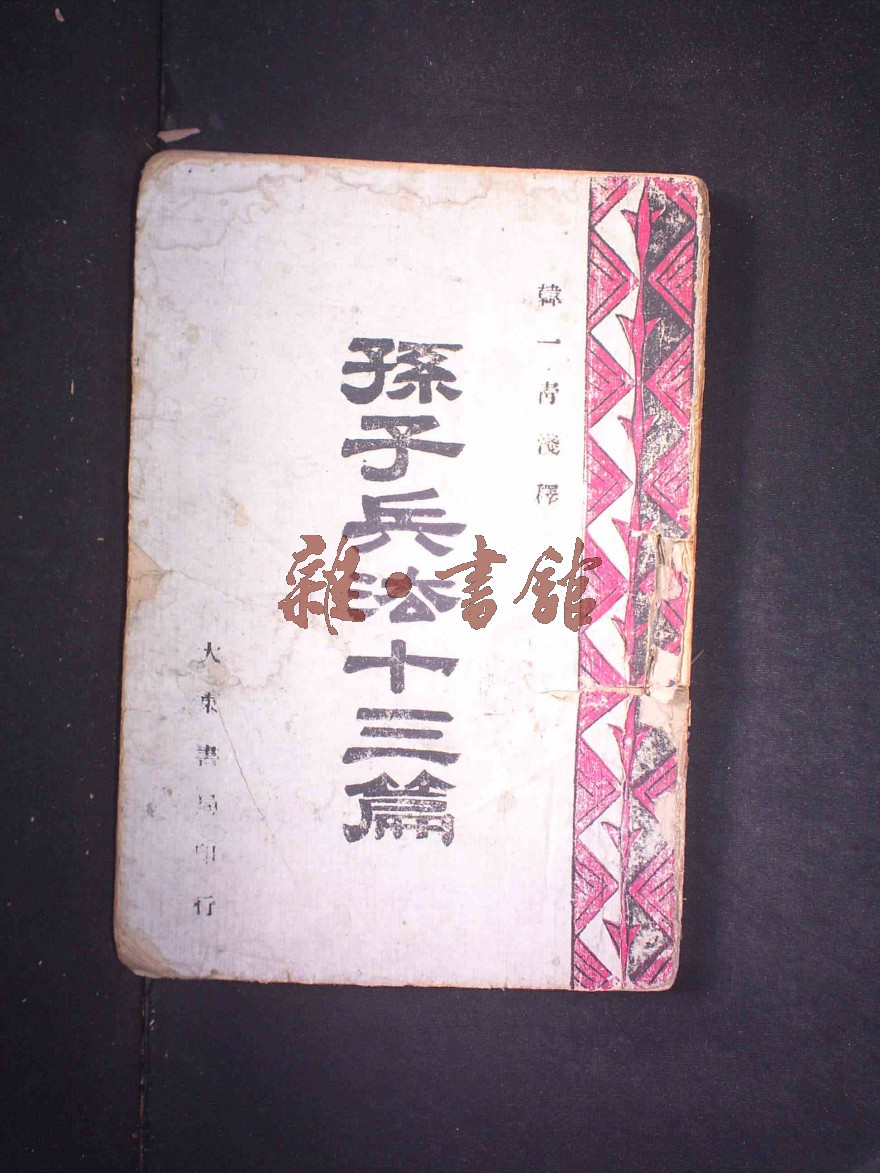 韓一青淺釋
孫子兵法十三篇
大東書局印行
雜·書館